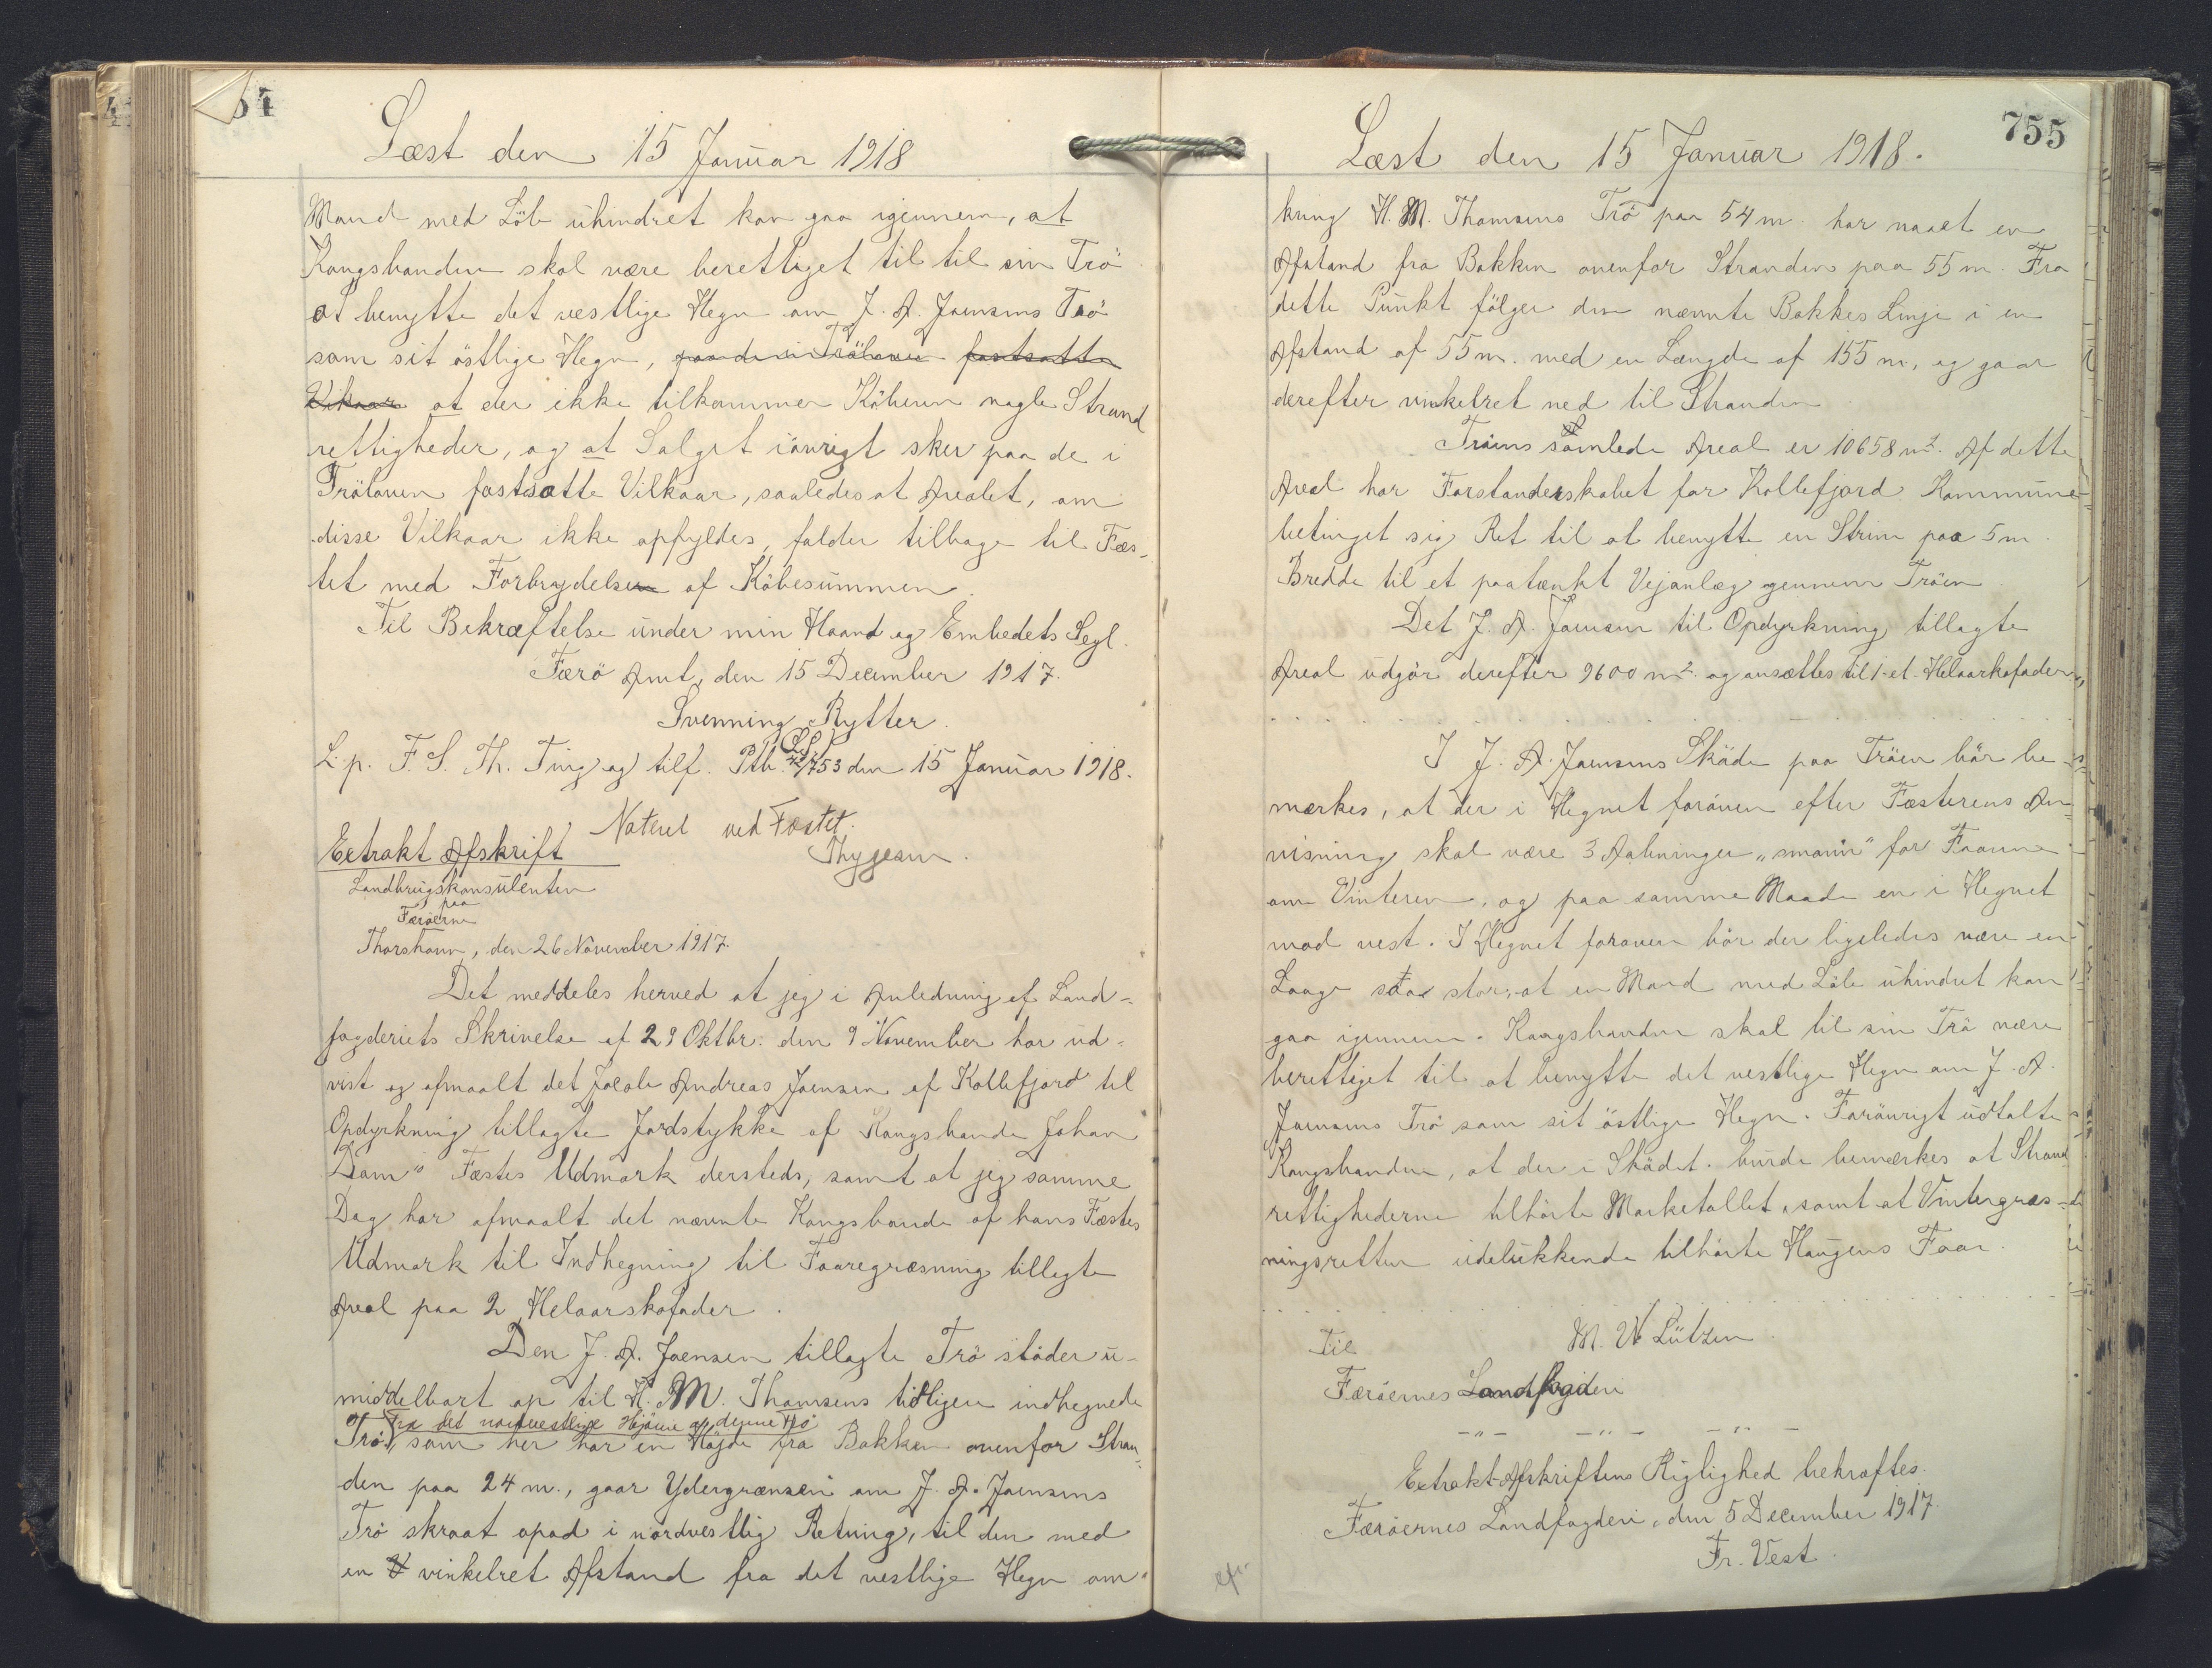 54
Læst den 15 Januar 1918
Mand med Löb uhindret kan gaa igennem, at
Kongsbonden skal være berettiget til til sin Trö
at benytte det vestlige Hegn om J. A. Joensens Trö
som sit östlige Hegn, paa de i Tröloven fastsatte
Vikaar at der ikke tilkommer Köberen nogle Strand
rettigheder, og at Salget iövrigt sker paa de i
Tröloven fastsatte Vilkaar, saaledes at Arealet, om
disse Vilkaar ikke opfyldes, falder tilbage til Fæs-
tet med Forbrydelsen af Köbesummen.
Til Bekræftelse under min Haand og Embedets Segl.
Færö Amt, den 15 December 1917.
Svenning Rytter.
L.S.
L. p. F. S. Th. Ting og tilf. Ptb. 753 den 15 Januar 1918.
Noteret ved Fæstet.
Thygesen.
Extrakt Afskrift
Landbrugskonsulenten
paa
Færöerne
Thorshavn, den 26 November 1917.
Det meddeles herved at jeg i Anledning af Land-
fogderiets Skrivelse af 29 Oktbr. den 9 November har ud-
vist og afmaalt det Jacob Andreas Joensen af Kollefjord til
Opdyrkning tillagte Jordstykke af Kongsbonde Johan
Dam's Fæstes Udmark dersteds, samt at jeg samme
Dag har afmaalt det nævnte Kongsbonde af hans Fæstes
Udmark til Indhegning til Faaregræsning tillagte
Areal paa 2 Helaarskofoder.
Den J. A. Joensen tillagte Trö stöder u-
middelbart op til H. M. Thomsens tidligere indhegnede
Fra det nordvestlige Hjörne af denne Trö
Trö, som her har en Höjde fra Bakken ovenfor Stran-
den paa 24 m., gaar Ydergrænsen om J. A. Joensens
Trö skraat opad i nordvestlig Retning, til den med
en V vinkelret Afstand fra det vestlige Hegn om
755
Læst den 15 Januar 1918.
kring H. M. Thomsens Trö paa 54 m. har naaet en
Afstand fra Bakken ovenfor Stranden paa 55 m. Fra
dette Punkt fölger den nævnte Bakkes Linje i en
Afstand af 55 m. med en Længde af 155 m, og gaar
derefter vinkelret ned til Stranden
Tröens samlede Areal er 10658 m². Af dette
Areal har Forstanderskabet for Kollefjord Kommune
betinget sig Ret til at benytte en Strim paa 5 m.
Bredde til et paatænkt Vejanlæg gennem Tröen
Det J. A. Joensen til Opdyrkning tillagte
Areal udgör derefter 9600 m² og ansættes til 1-et-Helaarkofoder.
I J. A. Joensens Sköde paa Tröen bör be-
mærkes, at der i Hegnet foroven efter Fæsterens An-
visning skal være 3 Aabninger „smoúir" for Faarene
om Vinteren, og paa samme Maade en i Hegnet
mod vest. I Hegnet foroven bör der ligeledes være en
Laage saa stor, at en Mand med Löb uhindret kan
gaa igennem. Kongsbonden skal til sin Trö være
berettiget til at benytte det vestlige Hegn om J. A.
Joensens Trö som sit östlige Hegn. Foröwrigt udtalte
Kongsbonden, at der i Sködet burde bemærkes at Strand
rettighederne tilhörte Marketallet, samt at Vintergræs-
ningsretten udelukkende tilhörte Haugens Faar.
M. W Lützen.
Til
Færöernes Landfogderi
-"- -"- -"-
Extrakt-Afskriftens Rigtighed bekræftes.
Færöernes Landfogderi, den 5 December 1917.
Fr. Vest.